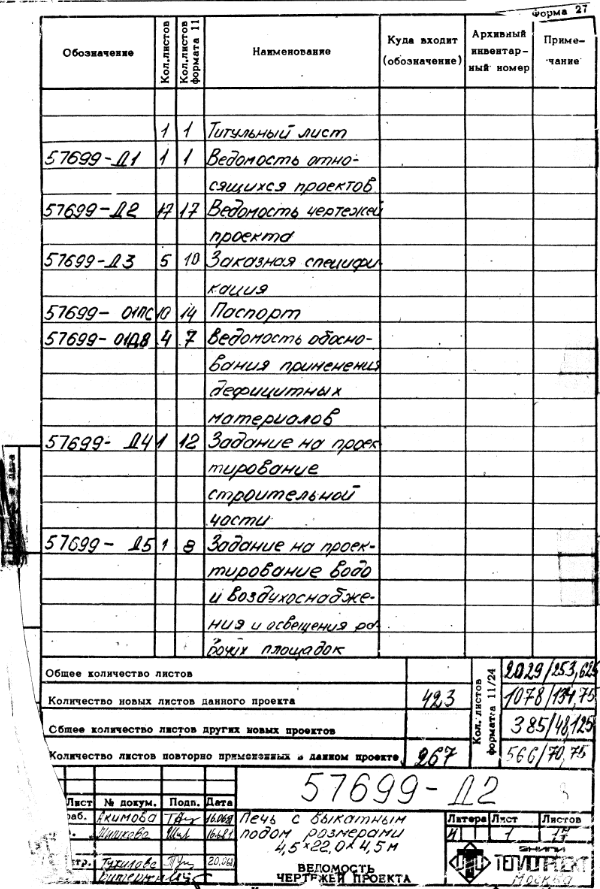 Форма 27
Обозначение Кол.листов Кол.листов формата 11 Наименование Куда входит (обозначение) Архивный инвентарный номер Приме-чание
1 1 Титульный лист
57699-Д1 1 1 Ведомость отно-
сящихся проектов
57699-Д2 17 17 Ведомость чертежей
проекта
57699-Д3 5 10 Заказная специфи-
кация
57699-01ПС 10 14 Паспорт
57699-01Д8 4 7 Ведомость обосно-
вания применения
дефицитных
материалов
57699-Д4 1 12 Задание на проек
тирование
строительной
части
57699-Д5 1 8 Задание на проек-
тирование водо
и воздухоснабже-
ния и освещения ра
бочих площадок
Общее количество листов
Количество новых листов данного проекта 423
Общее количество листов других новых проектов
Количество листов повторно примененных в данном проекте 267
Кол. листов формата 11/24
2029/253,625
1078/134,75
385/48,125
566/70,75
57699-Д2
Лист № докум. Подп. Дата
раб. Акимова
Печь с выкатным
подом размерами
4,5×22,0×4,5м
ВЕДОМОСТЬ
ЧЕРТЕЖЕЙ ПРОЕКТА
Литера Лист Листов
И 1 17
ВНИПИ
ТЕПЛОПРОЕКТ
Москва